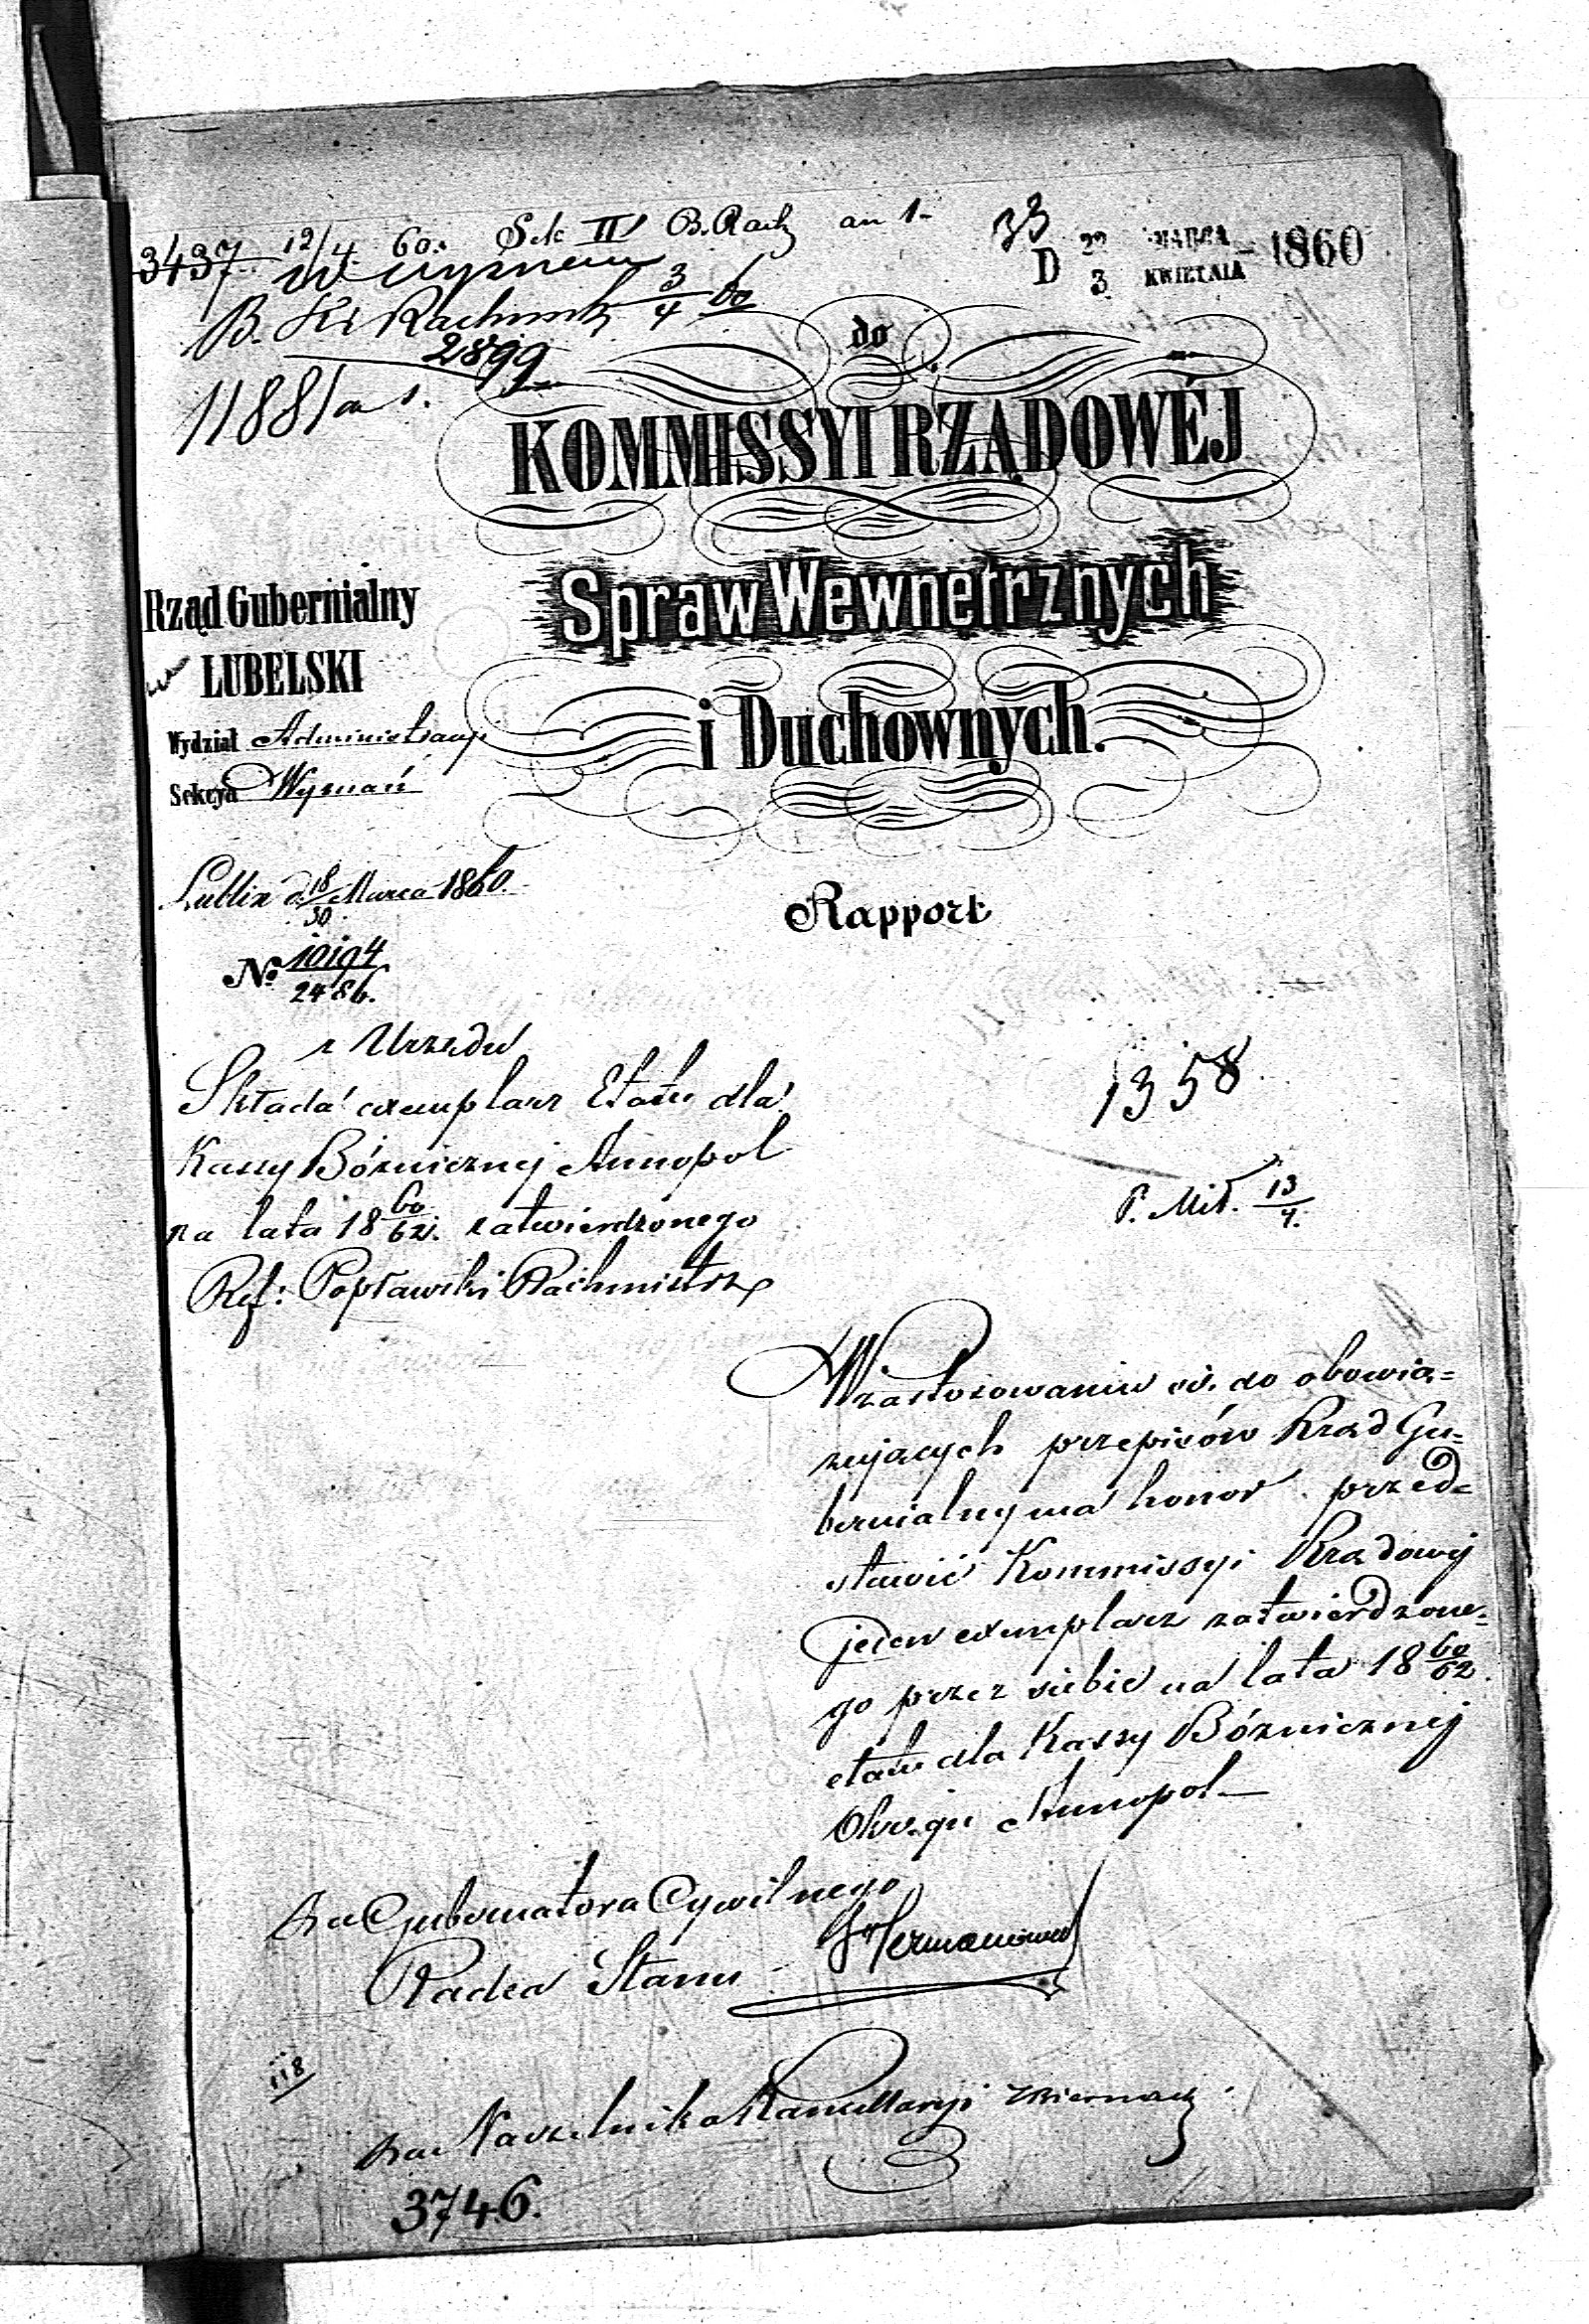 3437 12/4 60. Sek II B. Rach an 1-
33
W wyznan
D 22/3 MARCA/KWIETNIA 1860
B. Kt Rachunk 3/4 60
2899
11881 an 1.
do
KOMMISSYI RZĄDOWÉJ
Spraw Wewnetrznych
i Duchownych.
Rząd Gubernialny
LUBELSKI
Wydział Administracyj
Sekcya Wyznań
Lublin d. 18/30 Marca 1860.
Rapport
No 10194/2486.
z Urzędu
Składa exemplarz Etatu dla
Kassy Bóżnicznej Annopol
na lata 18 60/62. zatwierdzonego
Ref: Popławski Rachmistrz
1358
P. Mił. 13/4.
W zastosowaniu się do obowią=
zujących przepisów Rząd Gu=
bernialny ma honor przed=
stawić Kommissyi Rządowej
jeden exemplarz zatwierdzone=
go przez siebie na lata 18 60/62
etatu dla Kassy Bóżnicznej
Okręgu Annopol
za Gubernatora Cywilnego
Radca Stanu
118
za Naczelnika Kancellaryi
3746.